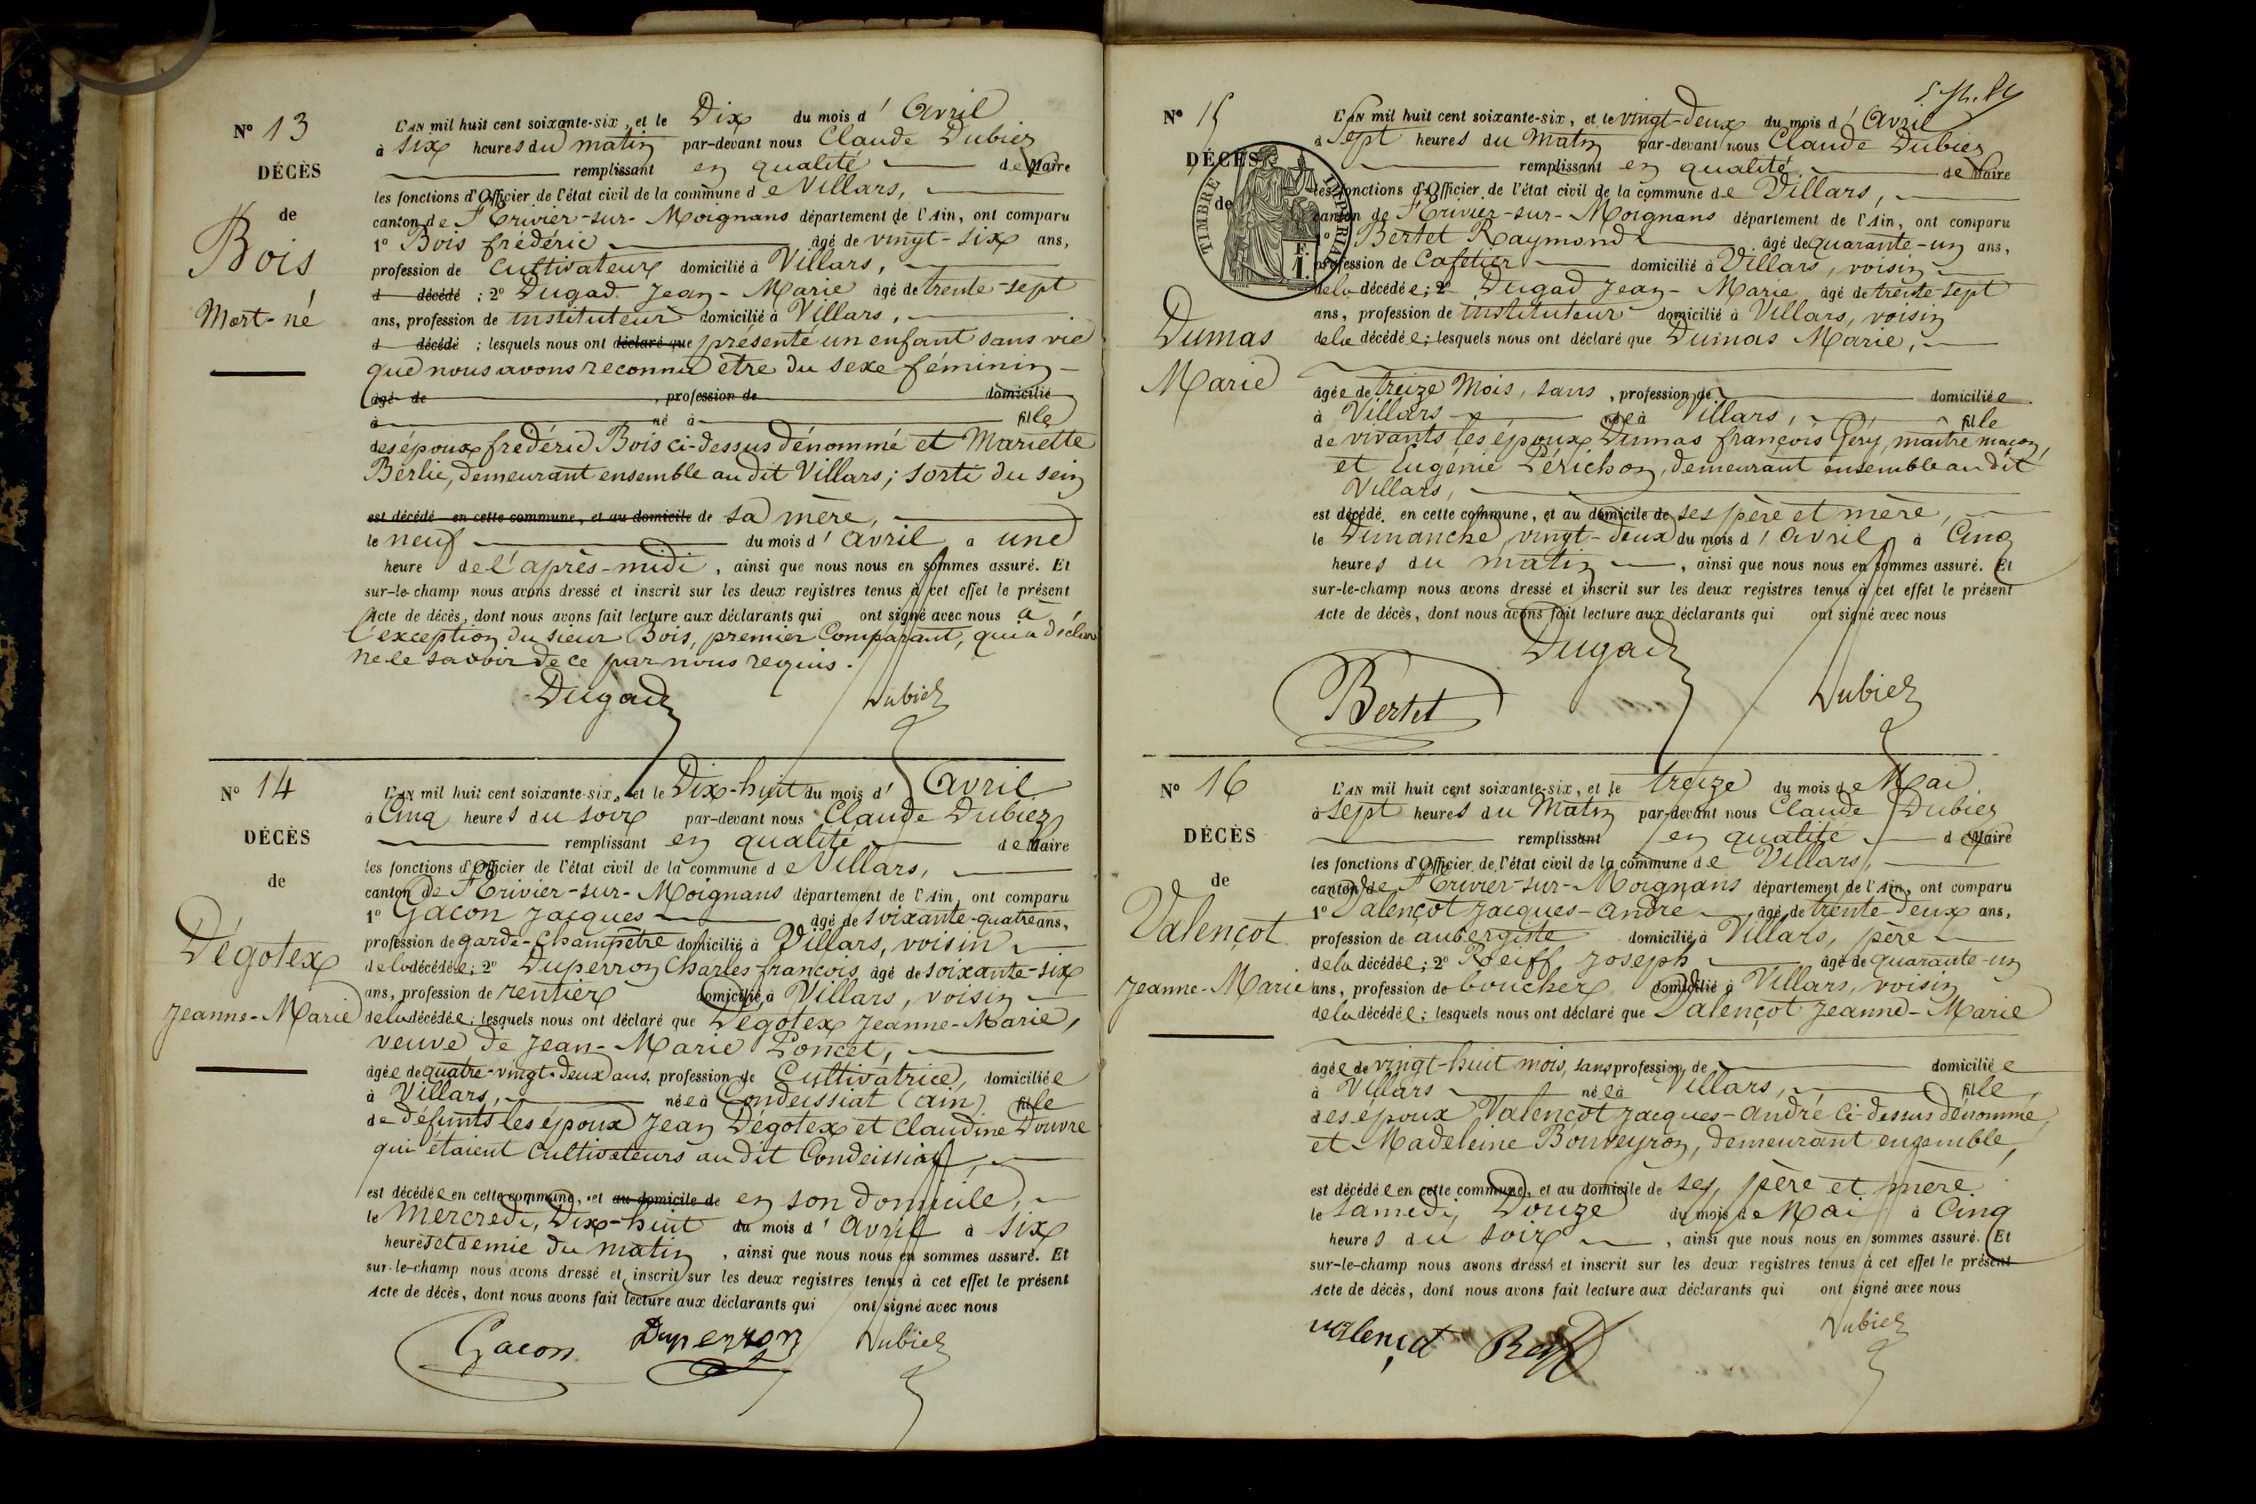 N° 13
DÉCÈS
de
Bois
Mort-né
L'AN mil huit cent soixante-six, et le Dix du mois d'Avril
à six heures du matin par-devant nous Claude Dubiez
remplissant en qualité de Maire
les fonctions d'Officier de l'état civil de la commune de Villars,
canton de St Trivier-sur-Moignans département de l'Ain, ont comparu
1° Bois frédéric âgé de vingt-six ans,
profession de Cultivateur domicilié à Villars,
d décédé ; 2° Dugad Jean-Marie âgé de trente-sept
ans, profession de instituteur domicilié à Villars,
d décédé ; lesquels nous ont déclaré que présenté un enfant sans vie
que nous avons reconnu être du sexe féminin
âgé de , profession de domicilié
à né à fille
des époux frédéric Bois ci-dessus dénommé et Mariette
Berlie, demeurant ensemble au dit Villars ; sorti du sein
est décédé en cette commune, et au domicile de sa mère,
le neuf du mois d'avril à une
heure de l'après-midi, ainsi que nous nous en sommes assuré. Et
sur-le-champ nous avons dressé et inscrit sur les deux registres tenus à cet effet le présent
Acte de décès, dont nous avons fait lecture aux déclarants qui ont signé avec nous à
l'exception du sieur Bois, premier Comparant, qui a déclaré
ne le savoir de ce par nous requis.
Dugad Dubiez
N° 14
DÉCÈS
de
Dégotex
Jeanne-Marie
L'AN mil huit cent soixante-six, et le Dix-huit du mois d'Avril
à Cinq heures du soir par-devant nous Claude Dubiez
remplissant en qualité de Maire
les fonctions d'Officier de l'état civil de la commune de Villars,
canton de St Trivier-sur-Moignans département de l'Ain, ont comparu
1° Gacon Jacques âgé de soixante-quatre ans,
profession de garde-champêtre domicilié à Villars, voisin
de la décédée ; 2° Duperron Charles-françois âgé de soixante-six
ans, profession de rentier domicilié à Villars, voisin
de la décédée ; lesquels nous ont déclaré que Dégotex Jeanne-Marie,
veuve de Jean-Marie Poncet,
âgée de quatre-vingt-deux ans, profession de Cultivatrice, domiciliée
à Villars, née à Condeissiat (ain) fille
de défunts les époux Jean Dégotex et Claudine Douvre
qui étaient cultivateurs au dit Condeissiat,
est décédée en cette commune, et au domicile de en son domicile,
le mercredi, Dix-huit du mois d'avril à six
heures et demie du matin, ainsi que nous nous en sommes assuré. Et
sur-le-champ nous avons dressé et inscrit sur les deux registres tenus à cet effet le présent
Acte de décès, dont nous avons fait lecture aux déclarants qui ont signé avec nous
Gacon Duperron Dubiez
N° 15
DÉCÈS
de
TIMBRE IMPÉRIAL
Dumas
Marie
L'AN mil huit cent soixante-six, et le vingt-deux du mois d'Avril
à Sept heures du Matin par-devant nous Claude Dubiez
remplissant en qualité de Maire
les fonctions d'Officier de l'état civil de la commune de Villars,
canton de St Trivier-sur-Moignans département de l'Ain, ont comparu
1° Bertet Raymond âgé de quarante-un ans,
profession de Cafetier domicilié à Villars, voisin
de la décédée ; 2° Dugad Jean-Marie âgé de trente-sept
ans, profession de instituteur domicilié à Villars, voisin
de la décédée ; lesquels nous ont déclaré que Dumas Marie,
âgée de treize Mois, sans, profession de domiciliée
à Villars née à Villars, fille
de vivants les époux Dumas françois Géry, maître maçon,
et Eugénie Périchon, demeurant ensemble au dit
Villars,
est décédé en cette commune, et au domicile de ses père et mère,
le Dimanche, vingt-deux du mois d'avril à Cinq
heures du matin, ainsi que nous nous en sommes assuré. Et
sur-le-champ nous avons dressé et inscrit sur les deux registres tenus à cet effet le présent
Acte de décès, dont nous avons fait lecture aux déclarants qui ont signé avec nous
Dugad
Bertet Dubiez
N° 16
DÉCÈS
de
Valençot
Jeanne-Marie
L'AN mil huit cent soixante-six, et le treize du mois de Mai
à sept heures du Matin par-devant nous Claude Dubiez
remplissant en qualité de Maire
les fonctions d'Officier de l'état civil de la commune de Villars,
canton de St Trivier-sur-Moignans département de l'Ain, ont comparu
1° Valençot Jacques-andré âgé de trente-deux ans,
profession de aubergiste domicilié à Villars, père
de la décédée ; 2° Reiff Joseph âgé de quarante-un
ans, profession de boucher domicilié à Villars, voisin
de la décédée ; lesquels nous ont déclaré que Valençot Jeanne-Marie
âgée de vingt-huit mois, sans profession, de domiciliée
à Villars née à Villars, fille
des époux Valençot Jacques-andré Ci-dessus dénommé,
et Madeleine Bouveyron, demeurant ensemble,
est décédée en cette commune, et au domicile de ses père et mère
le samedi, Douze du mois de Mai à Cinq
heures du soir, ainsi que nous nous en sommes assuré. Et
sur-le-champ nous avons dressé et inscrit sur les deux registres tenus à cet effet le présent
Acte de décès, dont nous avons fait lecture aux déclarants qui ont signé avec nous
valençot Reiff Dubiez